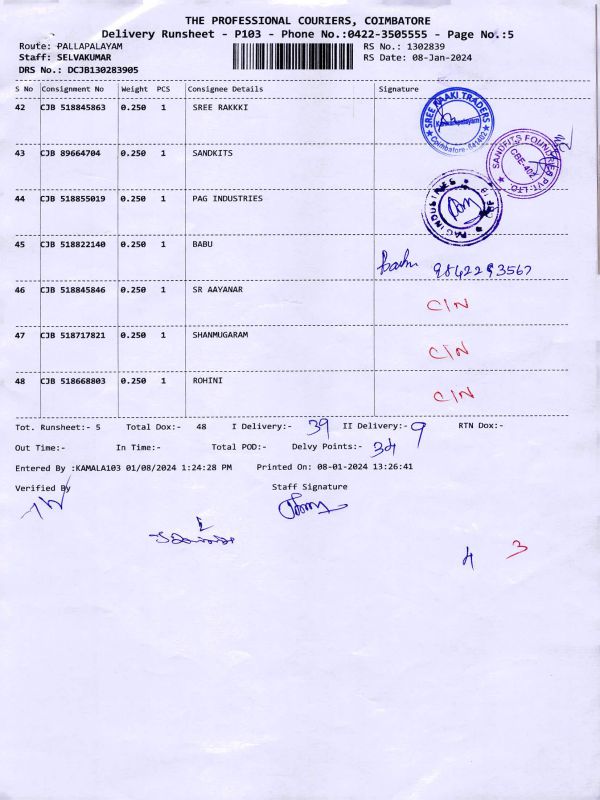 THE PROFESSIONAL COURIERS, COIMBATORE
Delivery Runsheet - P103 - Phone No.:0422-3505555 - Page No.:5
Route: PALLAPALAYAM RS No.: 1302839
Staff: SELVAKUMAR RS Date: 08-Jan-2024
DRS No.: DCJB130283905
S No Consignment No Weight PCS Consignee Details Signature
42 CJB 518845863 0.250 1 SREE RAKKKI
43 CJB 89664704 0.250 1 SANDKITS
SANDFITS FOUNDRIES PVT. LTD. CBE-402
44 CJB 518855019 0.250 1 PAG INDUSTRIES
PAG INDUSTRIES
45 CJB 518822140 0.250 1 BABU
Babu 9842293567
46 CJB 518845846 0.250 1 SR AAYANAR C/N
47 CJB 518717821 0.250 1 SHANMUGARAM C/N
48 CJB 518668803 0.250 1 ROHINI C/N
Tot. Runsheet:- 5 Total Dox:- 48 I Delivery:- 39 II Delivery:- 9 RTN Dox:-
Out Time:- In Time:- Total POD:- Delvy Points:- 34
Entered By :KAMALA103 01/08/2024 1:24:28 PM Printed On: 08-01-2024 13:26:41
Verified By Staff Signature
4 3